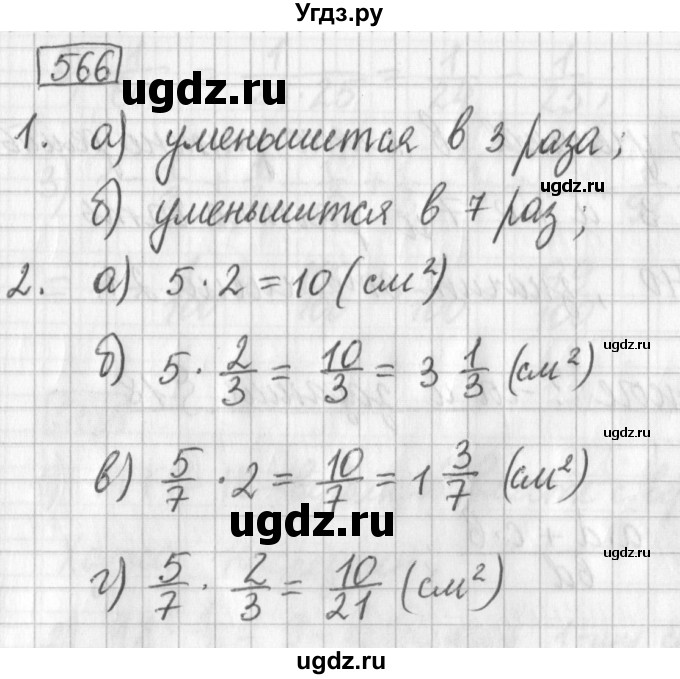 Угдз.ру
566
ugdz.ru
1. а) уменьшится в 3 раза;
ugdz.ru
б) уменьшится в 7 раз;
2. а) 5 · 2 = 10 (см²)
ugdz.ru
б) 5 · 2/3 = 10/3 = 3 1/3 (см²)
ugdz.ru
в) 5/7 · 2 = 10/7 = 1 3/7 (см²)
ugdz.ru
ugdz.ru
г) 5/7 · 2/3 = 10/21 (см²)
ugdz.ru